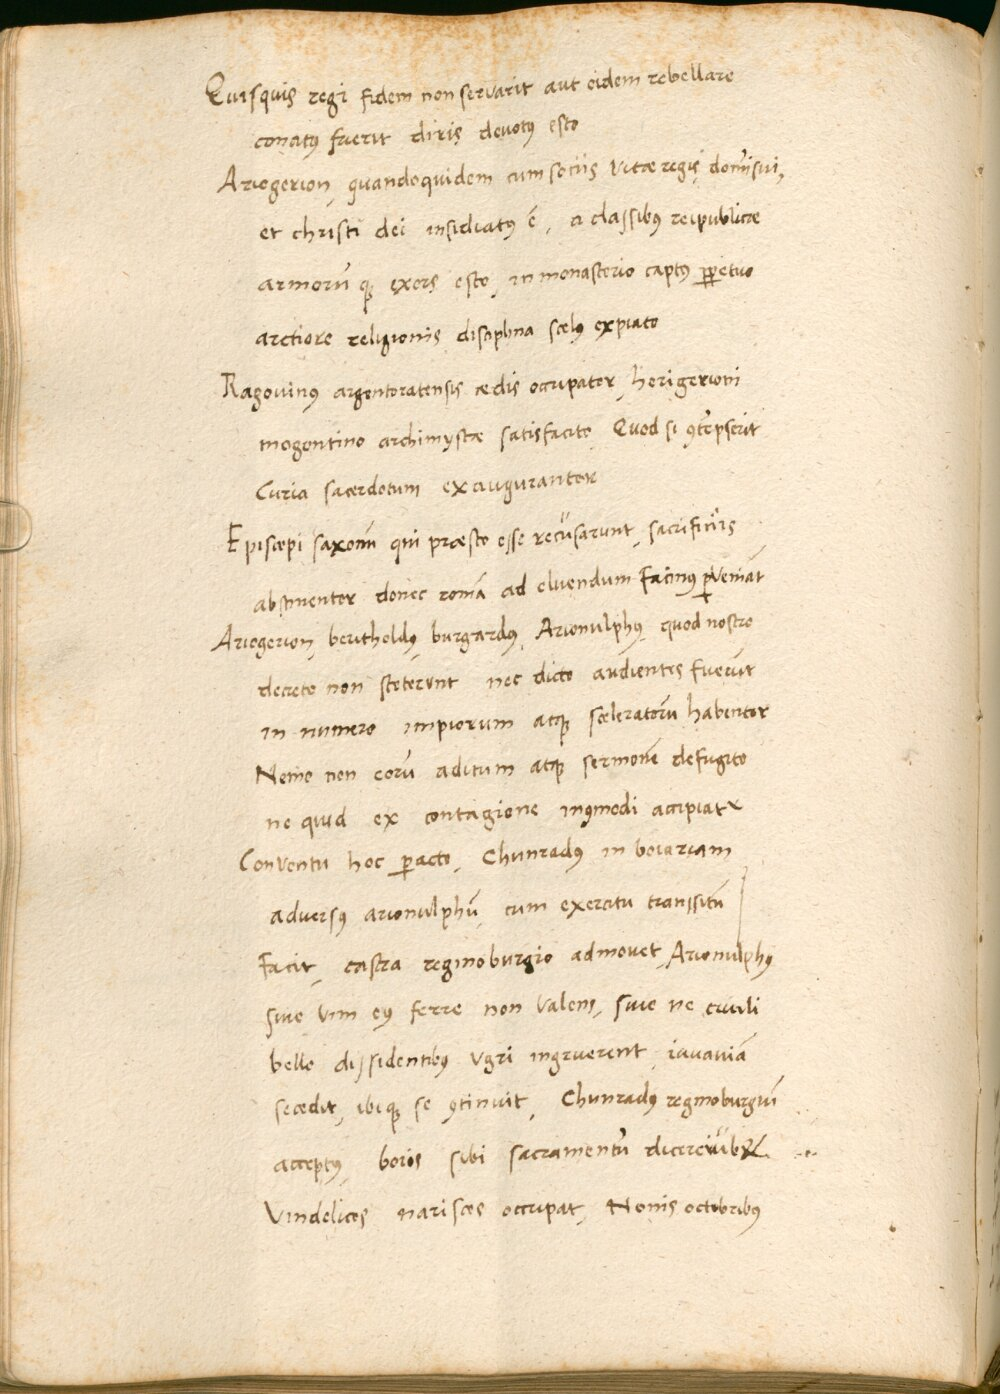 Quisquis regi fidem non servarit aut eidem rebellare
conatꝰ fuerit diris devotꝰ esto
Ariogerion, quandoquidem cum sociis vitæ regis domĩ sui,
et christi dei insidiatꝰ ẽ, a classibꝰ reipublicæ
armorũ qꝫ exors esto, in monasterio captꝰ ꝑpetuo
arctiore religionis disciplina scelꝰ expiato
Ragovinꝰ argentoratensis ædis occupator, herigerioni
mogontino archimystæ satisfacito Quod si ꝯtẽpserit
Curia sacerdotum exaugurantor
Episcopi saxonũ qui præsto esse recusarunt, sacrificiis
abstinentor donec romã ad eluendum facinꝰ ꝑveniãt
Ariogerion, beritholdꝰ, burgardꝰ, Arionulphꝰ, quod nostro
decreto non steterunt nec dicto audientes fuerũt
in numero impiorum atqꝫ sceleratorũ habentor
Nemo non eorũ aditum atqꝫ sermonẽ defugito
ne quid ex contagione inꝯmodi accipiat
Conventu hoc ꝑacto, Chunradꝰ in boiariam
adversꝰ arionulphũ cum exercitu transitũ
facit, castra reginoburgio admovet, Arionulphꝰ
sive vim eꝰ ferre non valens, sive ne civili
bello dissidentibꝰ ugri ingruerent iuvaviã
secedit, ibiqꝫ se ꝯtinuit, Chunradꝰ reginoburgiũ
acceptꝰ boios sibi sacramentũ dicere iubet
Vindelicos nariscos occupat, Nonis octobribꝰ